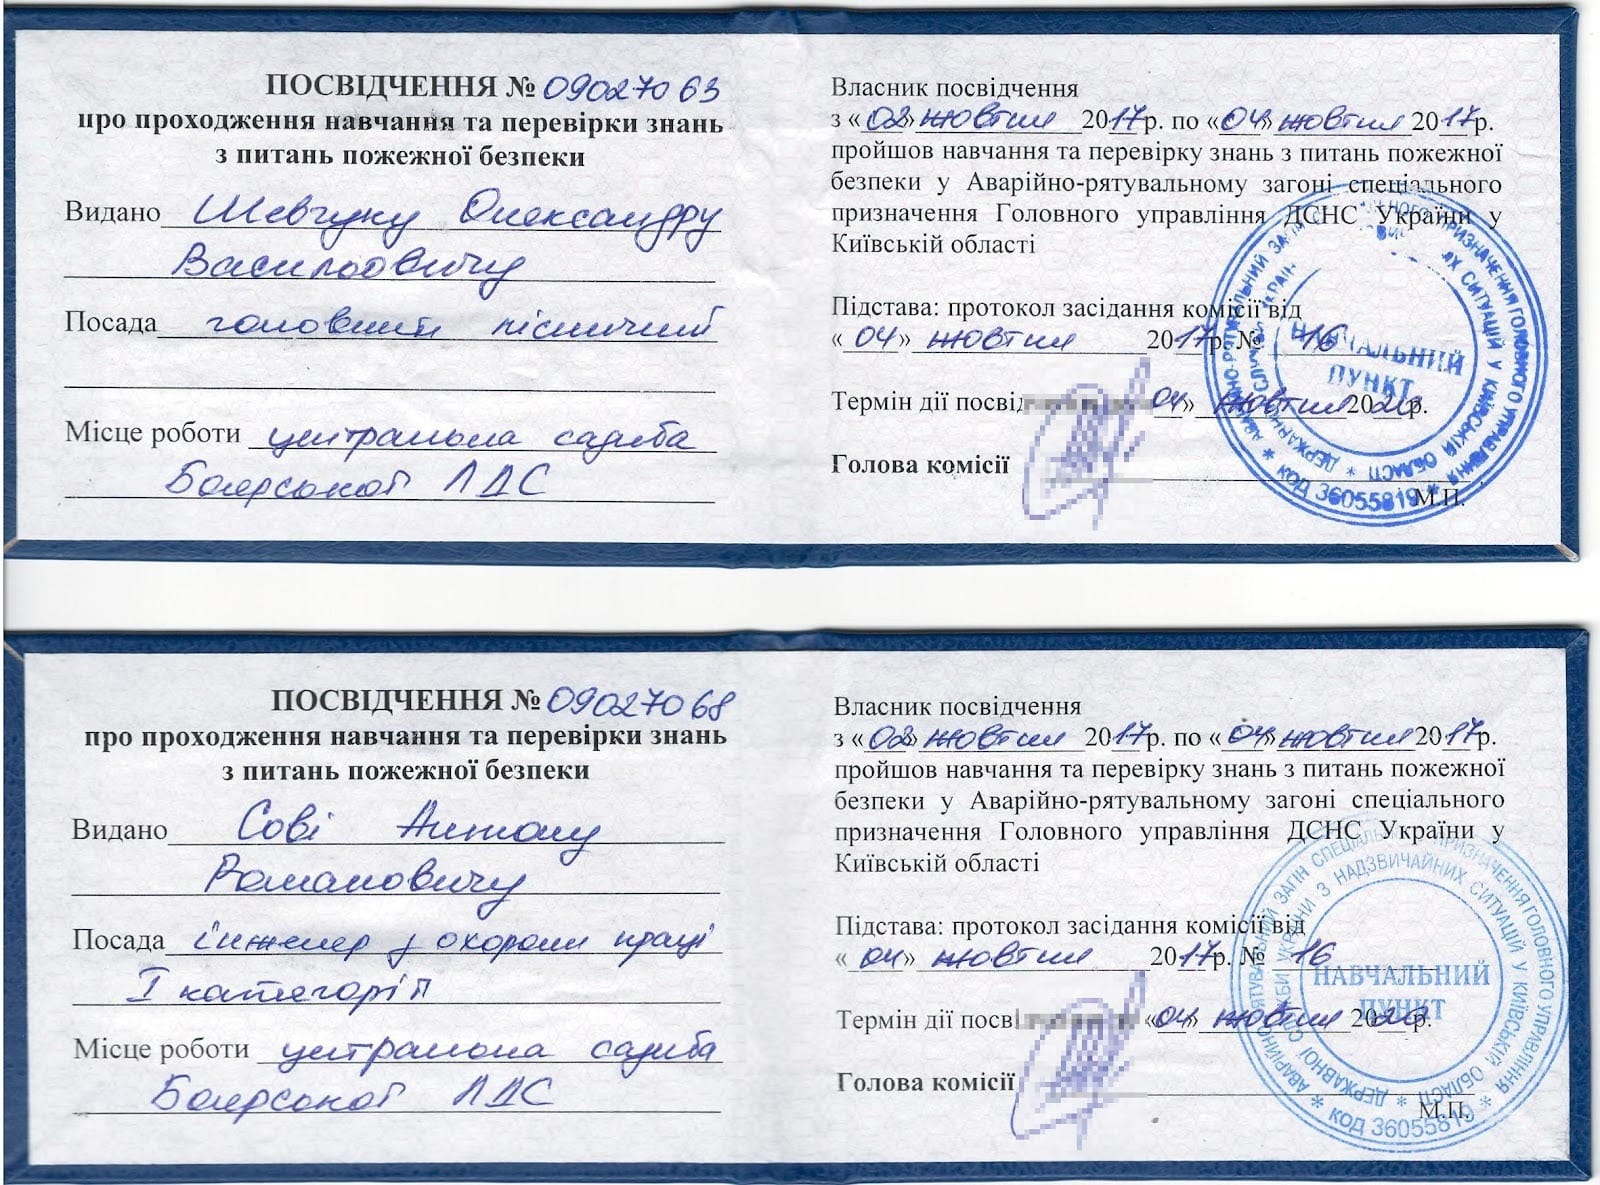 ПОСВІДЧЕННЯ № 09027063
про проходження навчання та перевірки знань
з питань пожежної безпеки
Видано Шевчуку Олександру
Васильовичу
Посада головний лісничий
Місце роботи центральна садиба
Боярської ЛДС
Власник посвідчення
з «02» жовтня 2017р. по «04» жовтня 2017р.
пройшов навчання та перевірку знань з питань пожежної
безпеки у Аварійно-рятувальному загоні спеціального
призначення Головного управління ДСНС України у
Київській області
Підстава: протокол засідання комісії від
«04» жовтня 2017р. № 16
Термін дії посвід 04» жовтня 2020р.
Голова комісії
М.П.
НАВЧАЛЬНИЙ
ПУНКТ
* код 36055819 *
ПОСВІДЧЕННЯ № 09027068
про проходження навчання та перевірки знань
з питань пожежної безпеки
Видано Сові Антону
Романовичу
Посада інженер з охорони праці
І категорії
Місце роботи центральна садиба
Боярської ЛДС
Власник посвідчення
з «02» жовтня 2017р. по «04» жовтня 2017р.
пройшов навчання та перевірку знань з питань пожежної
безпеки у Аварійно-рятувальному загоні спеціального
призначення Головного управління ДСНС України у
Київській області
Підстава: протокол засідання комісії від
«04» жовтня 2017р. № 16
Термін дії посві «04» жовтня 2020р.
Голова комісії
М.П.
АВАРІЙНО-РЯТУВАЛЬНИЙ ЗАГІН СПЕЦІАЛЬНОГО ПРИЗНАЧЕННЯ ГОЛОВНОГО УПРАВЛІННЯ
ДЕРЖАВНОЇ СЛУЖБИ УКРАЇНИ З НАДЗВИЧАЙНИХ СИТУАЦІЙ У КИЇВСЬКІЙ ОБЛАСТІ *
НАВЧАЛЬНИЙ
ПУНКТ
* код 36055819 *